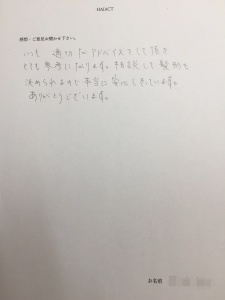 HAIACT
感想・ご意見お聞かせ下さい。
いつも 適切なアドバイスをして頂き
とても参考になります。相談して 髪形も
決められるので 本当に 安心しきっています。
ありがとうございます。
お名前